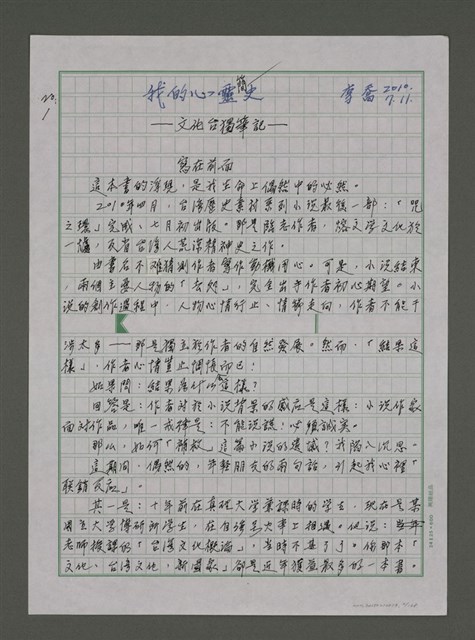 No.
1
我的心靈簡史
李喬 2010.
7.11.
—文化台獨筆記—
寫在前面
這本書的浮現，是我生命上偶然中的必然。
2010年四月，台灣歷史素材系列小說最後一部：「咒
之環」完成、七月初出版。那是陪志作者，熔文學文化於
一爐，反省台灣人荒謬精神史之作。
由書名不難猜測作者寫作動機用心。可是，小說結束，
兩個主要人物的「去處」，完全出乎作者初心期望。小
說的創作過程中，人物心情行止、情節走向，作者不能干
涉太多——那是獨立於作者的自然發展。然而，「結果這
樣」，作者心情豈止惆悵而已！
如果問：結果為什么這樣？
回答是：作者對於小說背景的感応是這樣；小說作家
面對作品，唯一戒律是：不能說謊！必須誠実。
那么，如何「解救」這篇小說的遺憾？我陷入沉思。
這期間，偶然的，年輕朋友的兩句話，引起我心裡「
聯鎖反応」。
其一是：十年前在真理大學兼課時的學生，現在是某
國立大學博研所學生，在自強号火車上相遇。他說：當年
老師授課的「台灣文化概論」，當時不甚了了。你那本「
文化、台灣文化、新國家」卻是近年獲益較多的一本書。